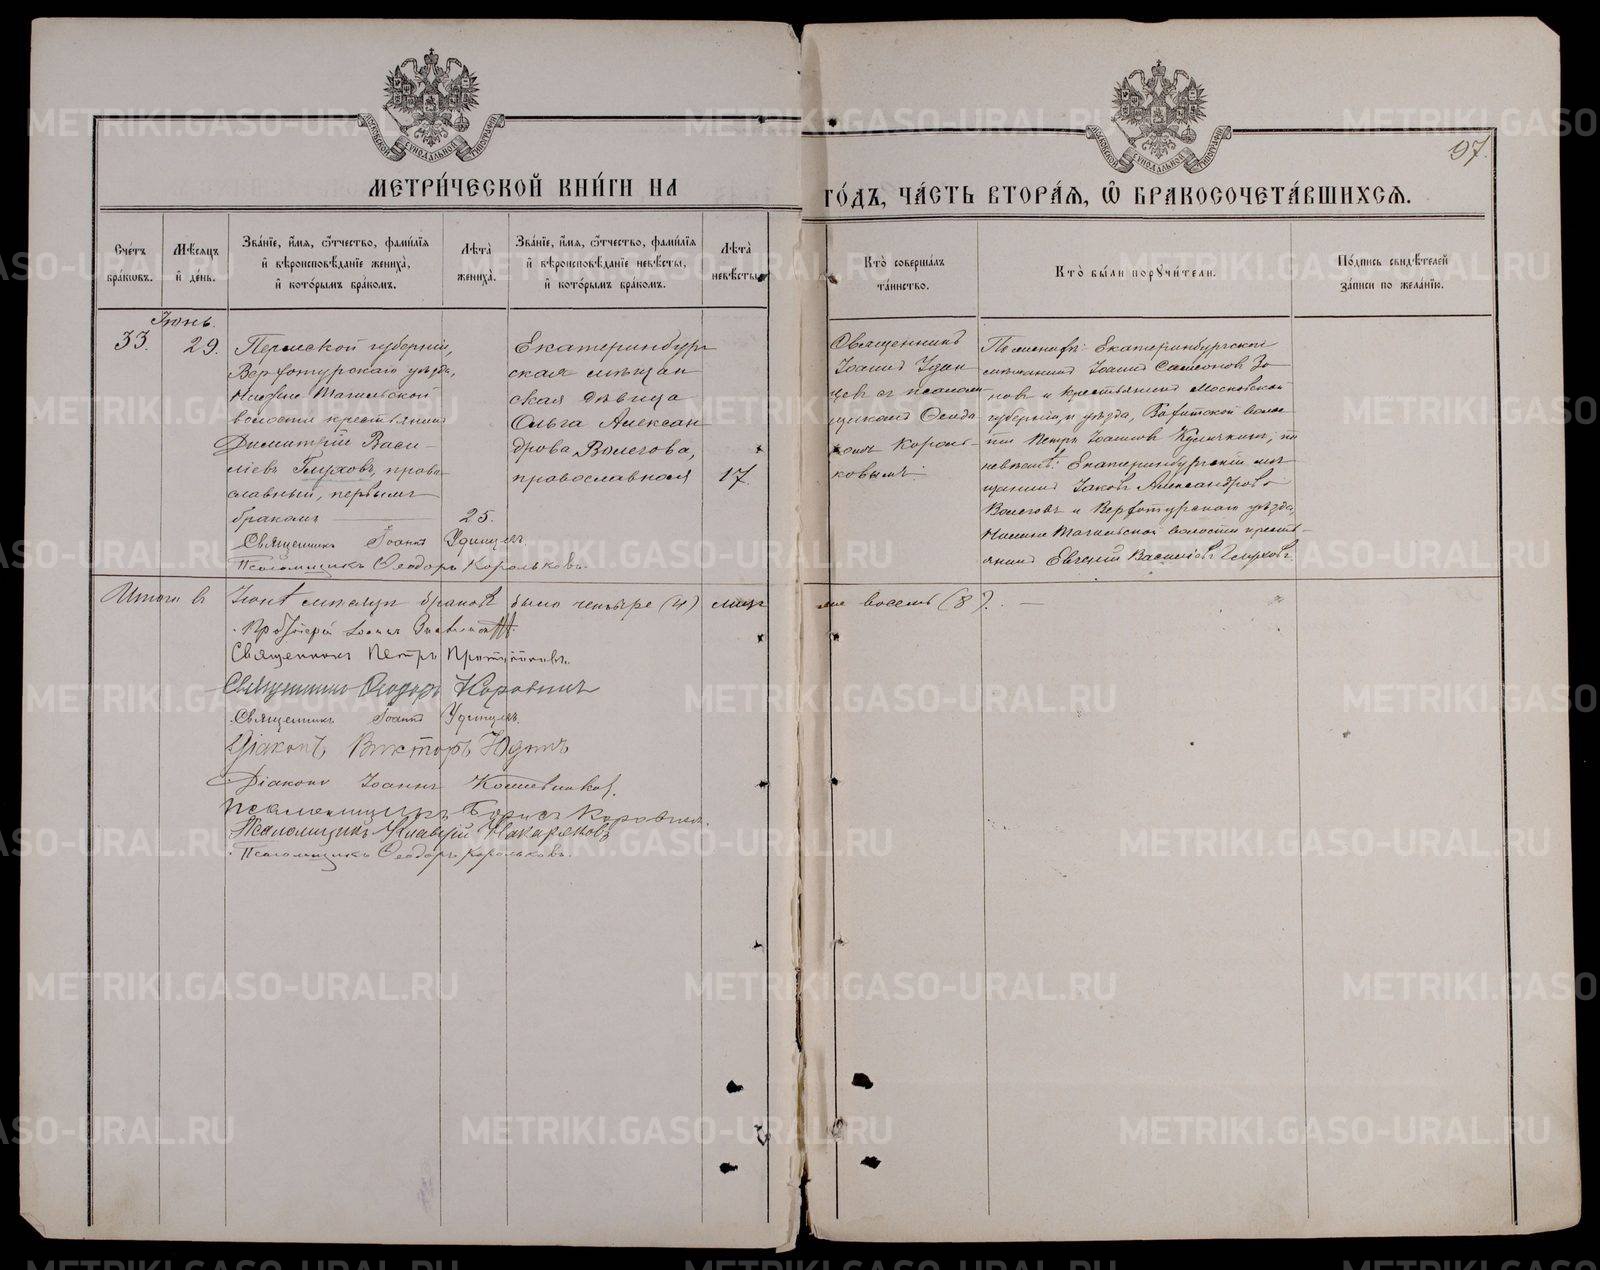 97.
МЕТРИ́ЧЕСКОЙ КНИ́ГИ НА
ГО́ДЪ, ЧА́СТЬ ВТОРА́Я, Ѿ БРАКОСОЧЕТА́ВШИХСЯ.
Сче́тъ бра́ковъ.
Мѣ́сяцъ и́ де́нь.
Зва́нїе, и́мя, ѻ҆́тчество, фами́лїя и́ вѣроисповѣ́данїе жениха̀, и́ кото́рымъ бра́комъ.
Лѣ́та жениха̀.
Зва́нїе, и́мя, ѻ҆́тчество, фами́лїя и́ вѣроисповѣ́данїе невѣ́сты, и́ кото́рымъ бра́комъ.
Лѣ́та невѣ́сты.
Кто̀ соверша́лъ та́инство.
Кто̀ бы́ли порꙋчи́тели.
По́дпись свидѣ́телей за́писи по жела́нїю.
Іюнь.
33.
29.
Пермской губерніи,
Верхотурскаго уѣзда,
Нижне Тагильской
волости крестьянинъ
Димитрій Васи-
ліевъ Глуховъ, право-
славный, первымъ
бракомъ
25.
Екатеринбург
ская мѣщан
ская дѣвица
Ольга Алексан
дрова Волегова,
православная
17.
Священникъ
Іоаннъ Удин
цев съ псалом
щикомъ Ѳеодо
ромъ Король-
ковымъ.
По женихѣ: Екатеринбургскій
мѣщанинъ Іоаннъ Самсонов Зо
нов и крестьянинъ Московской
губерніи, и уѣзда, волос
ти Петръ Іоаннов; по
невѣстѣ: Екатеринбургскій мѣ
щанинъ Іаковъ Александров
Волеговъ и Верхотурскаго уѣзда,
Нижне Тагильской волости кресть-
янинъ Евгеній Василіевъ Глуховъ.
Священникъ Іоаннъ Удинцевъ.
Псаломщикъ Ѳеодоръ Корольковъ.
Итого в Іюнѣ мѣсяцѣ браков было четыре (4) лицъ восемь (8).
Протоіерей Іоаннъ
Священникъ Петръ
Священникъ Ѳеодоръ Коровинъ
Священникъ Іоаннъ Удинцевъ.
Діаконъ Викторъ Юдинъ
Діаконъ Іоаннъ
Псаломщикъ Борисъ Коровинъ.
Псаломщикъ Клавдій Макаряковъ
Псаломщикъ Ѳеодоръ Корольковъ.
METRIKI.GASO-URAL.RU